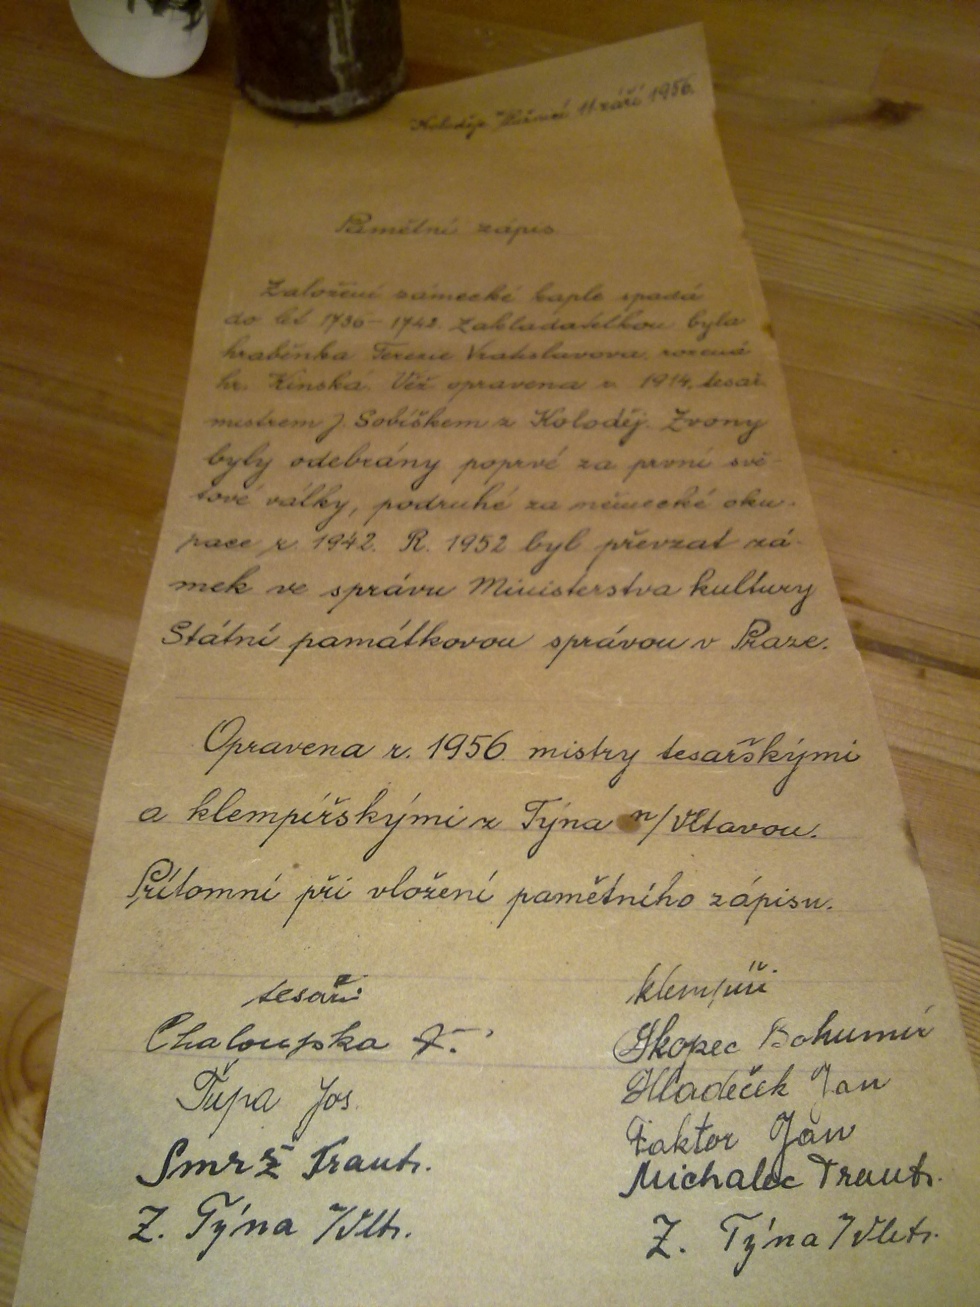 Koloděje 11 září 1956.
Pamětní zápis.
Založení zámecké kaple spadá
do let 1736-1742. Zakladatelkou byla
hraběnka Terezie Vratislavova, rozená
hr. Kinská. Věž opravena r. 1914, tesař.
mistrem J. Sobíškem z Koloděj. Zvony
byly odebrány poprvé za první svě-
tové války, podruhé za německé oku-
pace r. 1942. R. 1952 byl převzat zá-
mek ve správu Ministerstva kultury
Státní památkovou správou v Praze.
Opravena r. 1956 mistry tesařškými
a klempířškými z Týna n/Vltavou.
Přítomni při vložení pamětního zápisu.
tesaři
Chaloupka F.
Ťupa Jos.
Smrž Frant.
Z. Týna /Vlt.
klempíři
Skopec Bohumír
Hladeček Jan
Faktor Jan
Michalec Frant.
Z. Týna /Vlt.